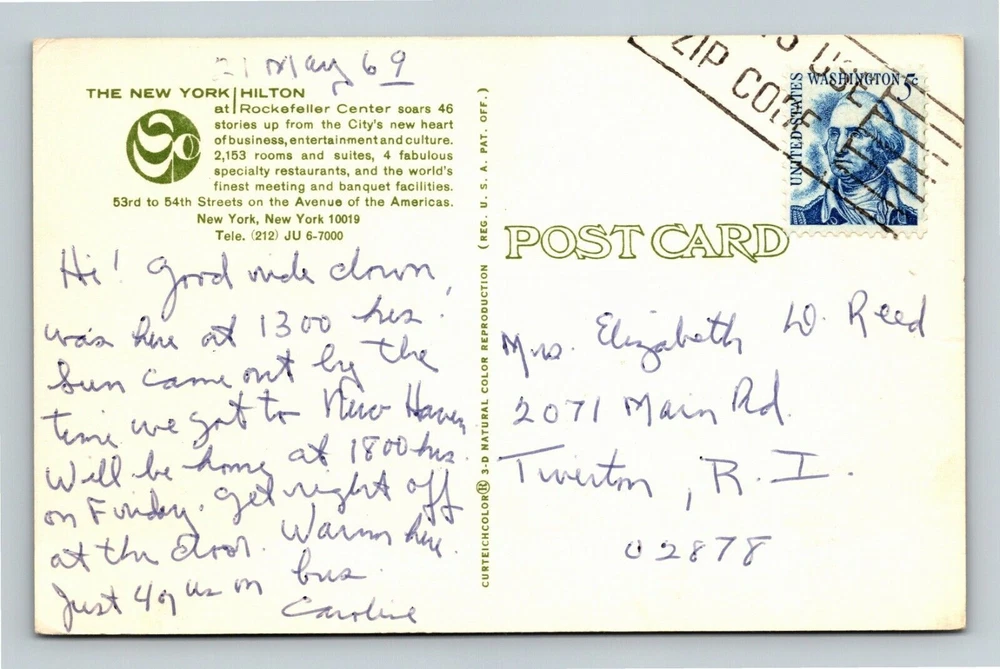 21 May 69
THE NEW YORK HILTON
at Rockefeller Center soars 46
stories up from the City's new heart
of business, entertainment and culture.
2,153 rooms and suites, 4 fabulous
specialty restaurants, and the world's
finest meeting and banquet facilities.
53rd to 54th Streets on the Avenue of the Americas.
New York, New York 10019
Tele. (212) JU 6-7000
Hi! Good ride down,
was here at 1300 hrs.
Sun came out by the
time we got to New Haven
Will be home at 1800 hrs.
on Friday. Get right off
at the door. Warm here.
Just 4 of us on bus.
Caroline
CURTEICHCOLOR® 3-D NATURAL COLOR REPRODUCTION (REG. U. S. A. PAT. OFF.)
POST CARD
ZIP CODE
UNITED STATES
WASHINGTON 5c
Mrs. Elizabeth W. Reed
2071 Main Rd.
Tiverton, R. I.
02878